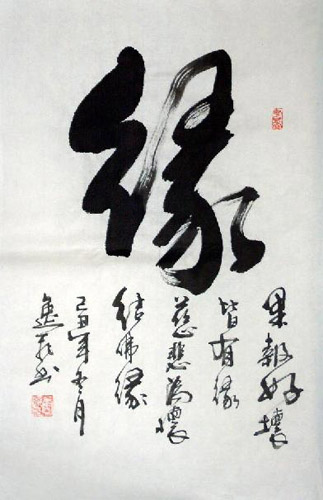 緣
果報好壞
皆有緣
慈悲為懷
結佛緣
己丑年冬月
書